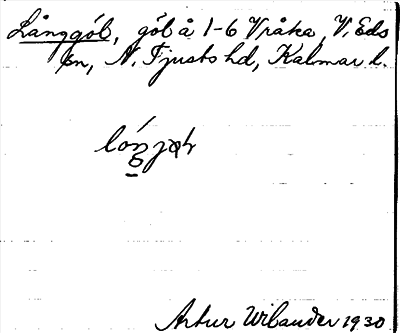 Långgöl, göl å 1-6 Vråka, V. Eds
sn, N. Tjusts hd, Kalmar l.
Artur Wilander 1930